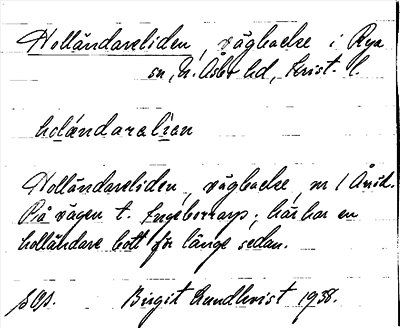 Holländareliden, vägbacke i Rya
sn, N. Åsbo hd, Krist. l.
holændaralian
Holländareliden, vägbacke, m 1 Ånid.
På vägen t. Engeltorp; här har en
holländare bott för länge sedan.
Birgit Lundkvist 1938.